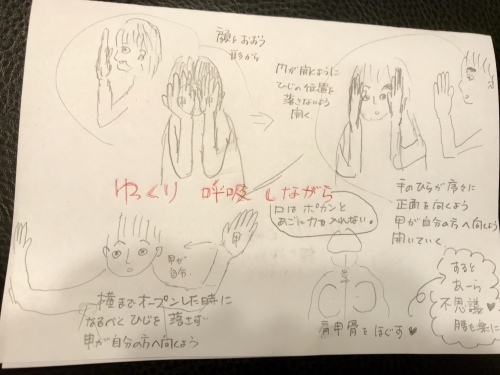 顔をおおう
形から
門が開くように
ひじの位置を
落さないよう
開く
ゆっくり 呼吸しながら
手のひらが序々に
正面を向くよう
甲が自分の方へ向くよう
開いていく
口はポカンと
あごに力を入れない。
甲
甲が
自分
横までオープンした時に
なるべくひじを落さず
甲が自分の方へ向くよう
肩甲骨をほぐす♥
すると
あーら
不思議♥
腕も楽に